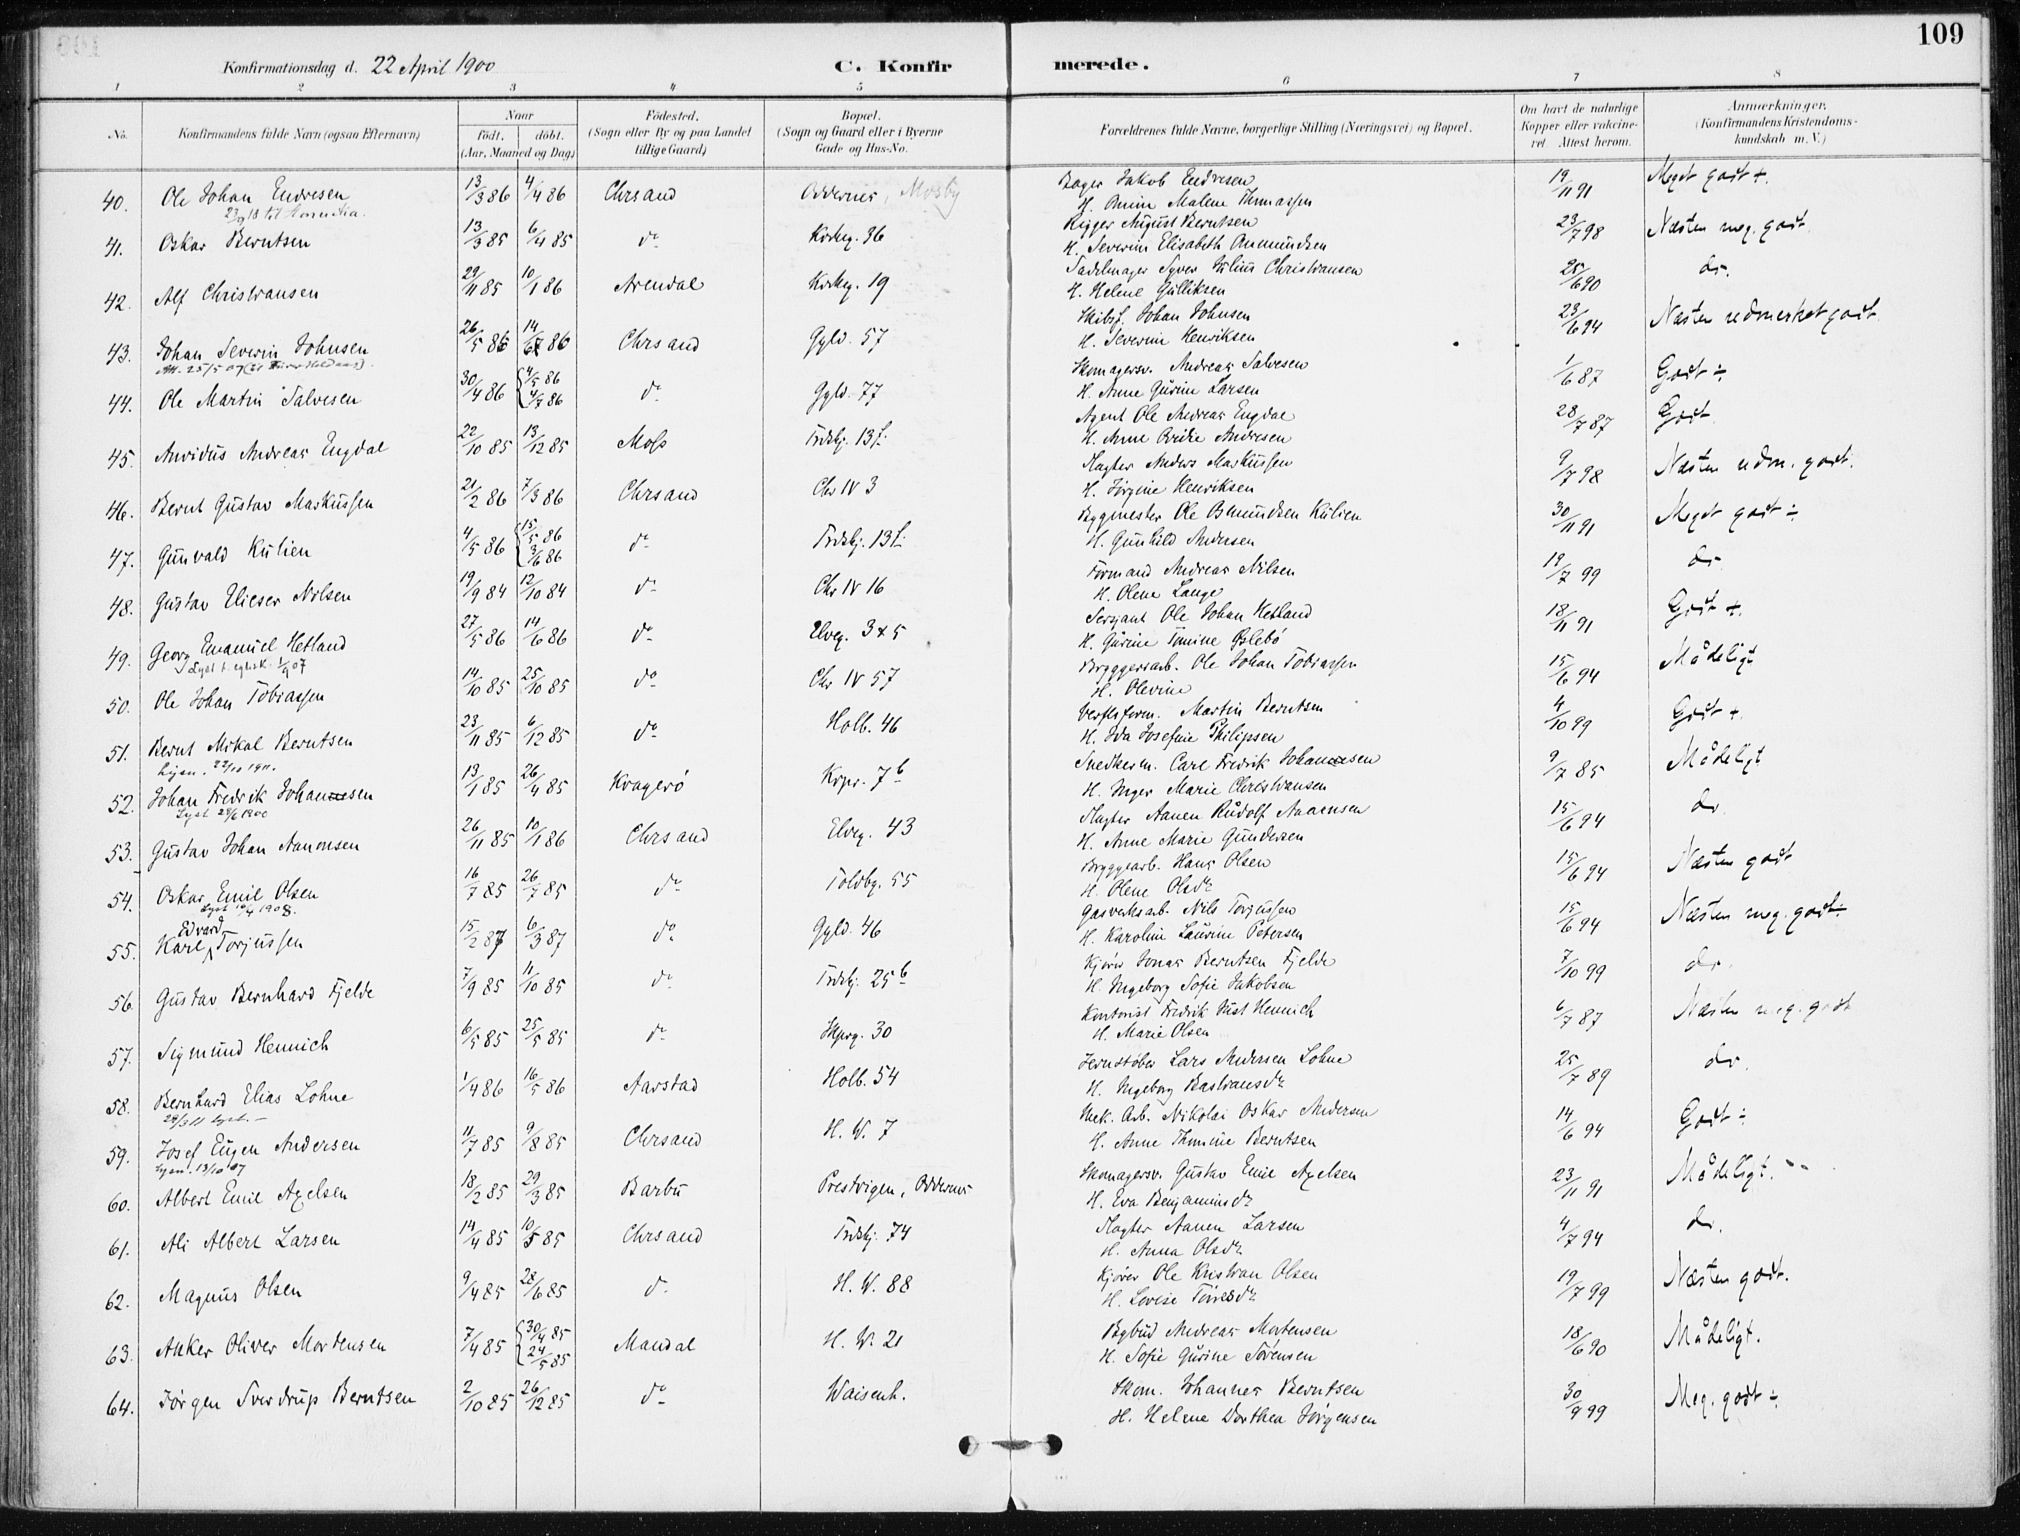 109
Konfirmationsdag d. 22 April 1900 C. Konfirmerede.
1 2 3 4 5 6 7 8
No. Konfirmandens fulde Navn (ogsaa Efternavn) Naar født. døbt. (Aar, Maaned og Dag.) Fødested. (Sogn eller By og paa Landet tillige Gaard) Bopæl. (Sogn og Gaard eller i Byerne Gade og Hus-No. Forældrenes fulde Navne, borgerlige Stilling (Næringsvei) og Bopæl. Om havt de naturlige Kopper eller vakcineret. Attest herom. Anmærkninger. (Konfirmandens Kristendomskundskab m. V.)
40. Ole Johan Endresen 13/3 86 4/4 86 Chrsand Oddernes, Mosby Bager Jakob Endresen 19/11 91 Meget godt +.
H. Malene Thomassen
41. Oskar Berntsen 13/3 85 6/4 85 do Kirkeg. 36 Rigger August Berntsen 23/7 98 Næsten meg. godt
H. Severine Elisabeth Anmundsen
42. Alf Christiansen 29/11 85 10/1 86 Arendal Kirkeg. 19 Sadelmager Syver Julius Christiansen 25/6 90 do.
H. Helene Gulliksen
43. Johan Severin Johnsen 26/5 86 14/7 86 Chrsand Gyld. 57 Skibsf. Johan Johnsen 23/6 94 Næsten udmerket godt
Att. 25/5 07
H. Severine Henriksen
44. Ole Martin Salvesen 30/4 86 4/5 86 4/7 86 do Gyld. 77 Skomagersv. Andreas Salvesen 1/6 87 Godt ÷
H. Anne Gurine Larsen
45. Arvidus Andreas Engdal 22/10 85 13/12 85 Moss Frdskj. 13 f. Agent Ole Andreas Engdal 28/7 87 Godt
H. Anne Andresen
46. Bernt Gustav Markussen 21/2 86 7/3 86 Chrsand Chr IV 3 Slagter Anders Markussen 9/7 98 Næsten udm. godt.
H. Jørgine Henriksen
47. Gunvald Kulien 4/5 86 15/5 86 3/6 86 do Frdskj. 13 f. Bygmester Ole Osmundsen Kulien 30/11 91 Meget godt ÷
H. Gunhild Andersen
48. Gustav Elieser Nilsen 19/9 84 12/10 84 do Chr IV 16 Formand Andreas Nilsen 19/7 99 do
H. Olene Lange
49. Georg Emanuel Hetland 27/5 86 14/6 86 do Elveg. 3 & 5 Sersjant Ole Johan Hetland 18/11 91 Godt +.
H. Gurine Tomine Øslebø
50. Ole Johan Tobiassen 14/10 85 25/10 85 do Chr IV 57 Bryggersarb. Ole Johan Tobiassen 15/6 94 Mådeligt
H. Olevine
51. Bernt Mikal Berntsen 23/11 85 6/12 85 do Holb. 46 Verftsform. Martin Berntsen 4/10 99 Godt +
Lysn. 22/10 1911.
H. Ida Josefine Philipsen
52. Johan Fredrik Johansen 13/1 85 26/4 85 Kragerø Krpr. 7 b Snedkerm. Carl Fredrik Johansen 9/7 85 Mådeligt
Lyst 29/6 1900
H. Inger Marie Christiansen
53. Gustav Johan Aanonsen 26/11 85 10/1 86 Chrsand Elveg. 43 Slagter Aanen Rudolf Aanensen 15/6 94 do
H. Anne Marie Gundersen
54. Oskar Emil Olsen 16/7 85 26/7 85 do Toldbg. 55 Bryggearb. Hans Olsen 15/6 94 Næsten godt
H. Olene Olsdr
55. Karl Edvard Torjussen 15/2 87 6/3 87 do Gyld. 46 Gasverksarb. Nils Torjussen 15/6 94 Næsten meg. godt ÷
H. Karoline Laurine Petersen
56. Gustav Bernhard Fjelde 7/9 85 11/10 85 do Frdskj. 25 b Kjører Jonas Berntsen Fjelde 7/10 99 do.
H. Ingeborg Sofie Jakobsen
57. Sigmund Hennich 6/5 85 25/5 85 do Skprg. 30 Kontorist Fredrik Just Hennich 6/7 87 Næsten meg. godt
H. Marie Olsen
58. Bernhard Elias Lohne 1/4 86 16/5 86 Aarstad Holb. 54 Jernstøber Lars Andersen Lohne 25/7 89 do.
H. Ingeborg Bastiansdr
59. Josef Eugen Andersen 11/7 85 9/8 85 Chrsand H. W. 7 Mek. Arb. Nikolai Oskar Andersen 14/6 94 Godt ÷
Lysn. 13/10 07
H. Anne Thomine Berntsen
60. Albert Emil Axelsen 18/2 85 29/3 85 Barbu Prestvigen, Oddernes Skomagersv. Gustav Emil Axelsen 23/11 91 Mådeligt.
H. Eva Benjaminsdr
61. Ali Albert Larsen 14/4 85 10/5 85 Chrsand Frdskj. 74 Slagter Aanen Larsen 4/7 94 do.
H. Anna Olsdr
62. Magnus Olsen 9/4 85 28/6 85 do H. W. 88 Kjører Ole Kristian Olsen 19/7 99 Næsten godt.
H. Lovise Torresdr
63. Anker Oliver Mortensen 7/4 85 30/4 85 24/5 85 Mandal H. W. 21 Bybud Andreas Mortensen 18/6 90 Mådeligt.
H. Sofie Gurine Sørensen
64. Jørgen Sverdrup Berntsen 2/10 85 26/12 85 do Waisenh. Skom. Johannes Berntsen 30/9 99 Meg. godt ÷
H. Helene Dorthea Jørgensen